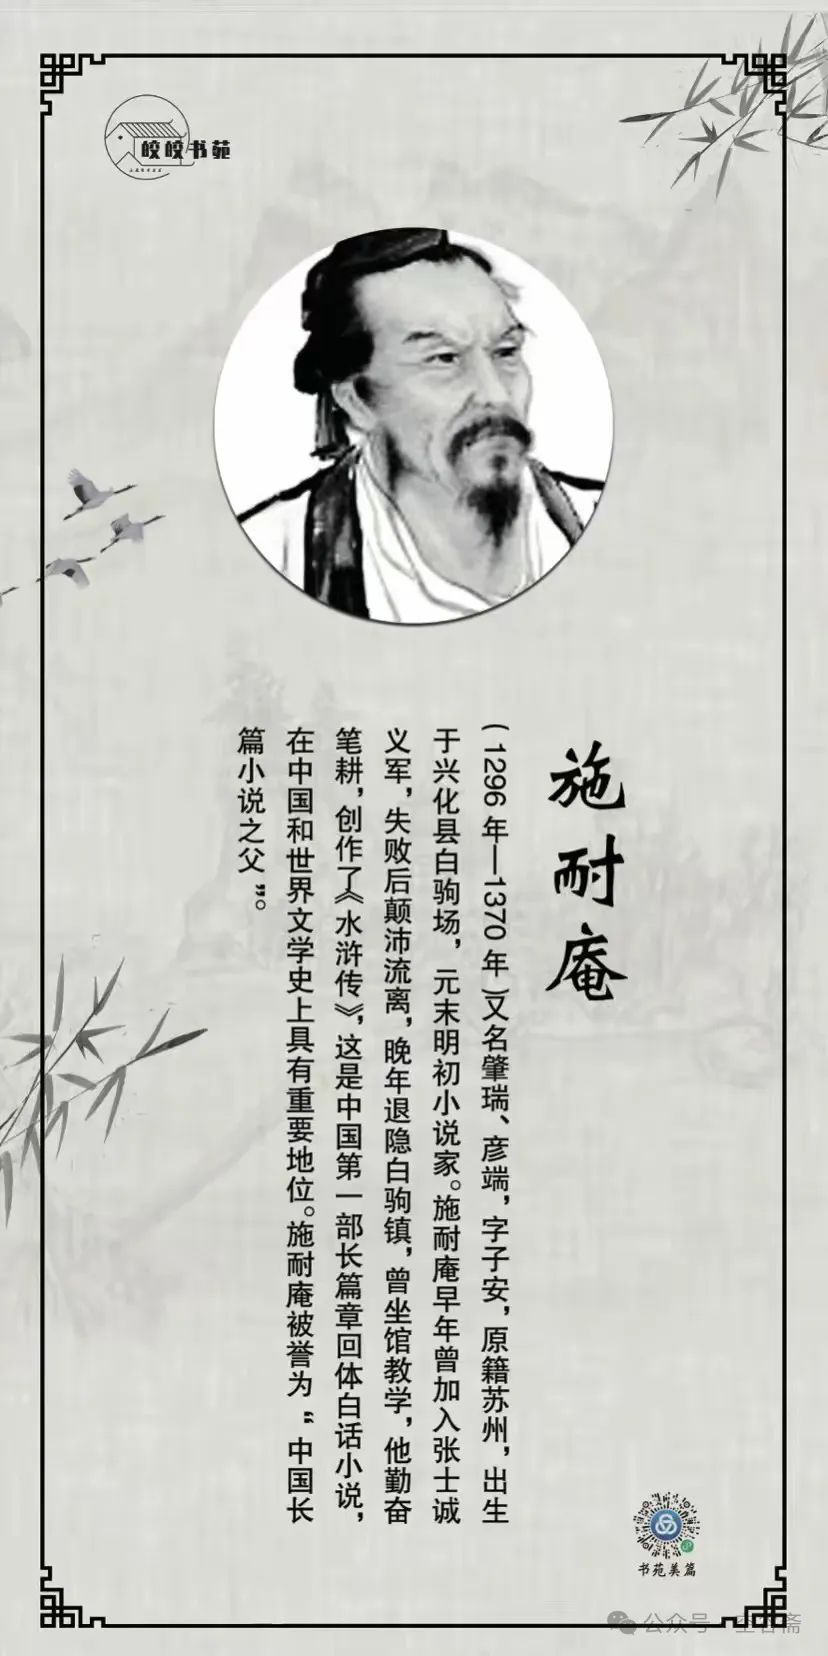 皎皎书苑
施耐庵
（1296年—1370年）又名肇瑞、彦端，字子安，原籍苏州，出生
于兴化县白驹场，元末明初小说家。施耐庵早年曾加入张士诚
义军，失败后颠沛流离，晚年退隐白驹镇，曾坐馆教学，他勤奋
笔耕，创作了《水浒传》，这是中国第一部长篇章回体白话小说，
在中国和世界文学史上具有重要地位。施耐庵被誉为“中国长
篇小说之父”。
书苑美篇
公众号